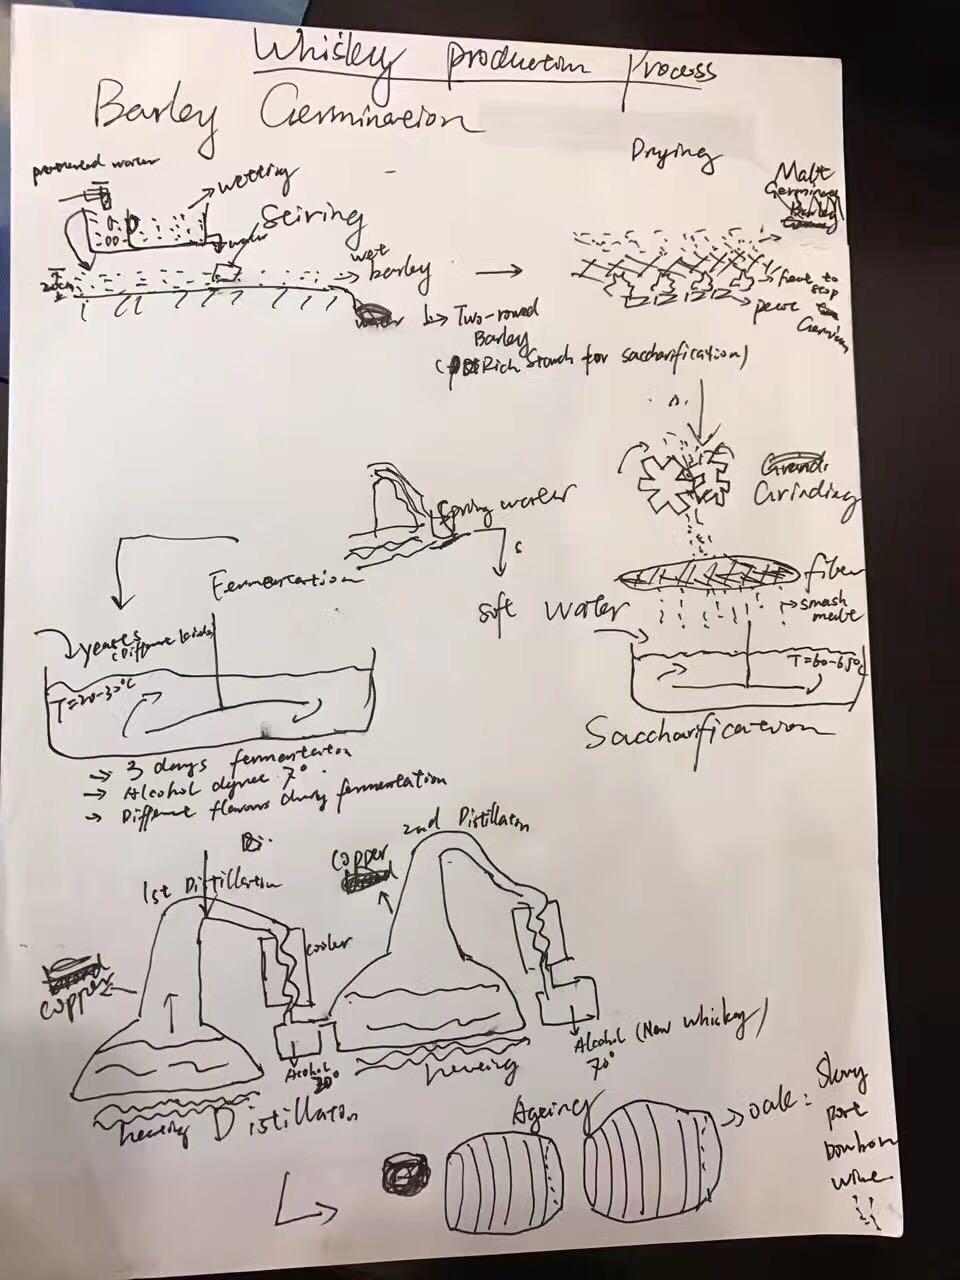 Whiskey production process
Barley Germination
Drying
water
wetting
Stiring
water
20cm
wet
barley
water
Two-rowed
Barley
(Rich Starch for saccharification)
Malt
Germinated
Barley
heat to
stop
peat
Germin
Grinding
fiber
smash
malt
Spring water
soft water
T=60-65°C
Saccharification
Fermentation
yeasts
(Different kinds)
T=20-30°C
→ 3 days fermentation
→ Alcohol degree 7°
→ Different flavours during fermentation
Di.
1st Distillation
2nd Distillaton
copper
copper
cooler
Alcohol
20°
heating
heating
Alcohol (New whiskey)
70°
Distillaton
Ageing
oak: Sherry
port
bourbon
wine